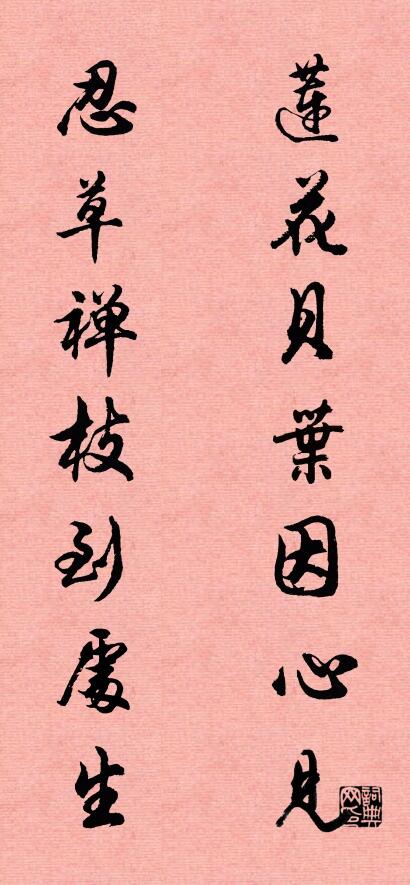 蓮花貝葉因心見
忍草禅枝到處生
詞典網